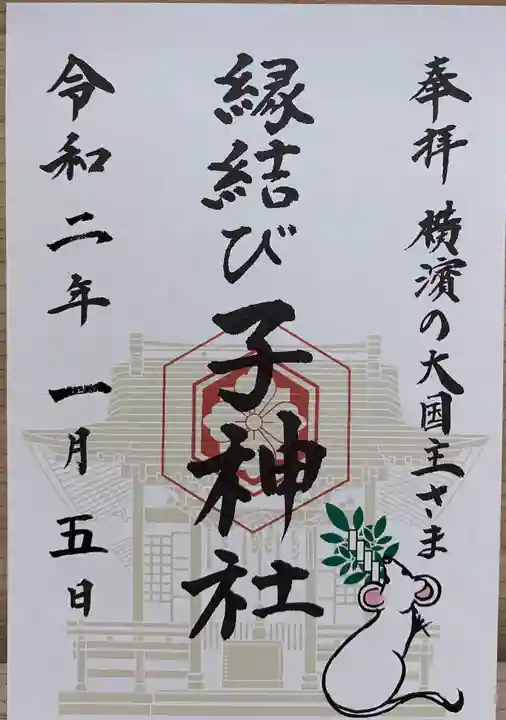 奉拝 横濱の大国主さま
縁結び 子神社
令和二年一月五日